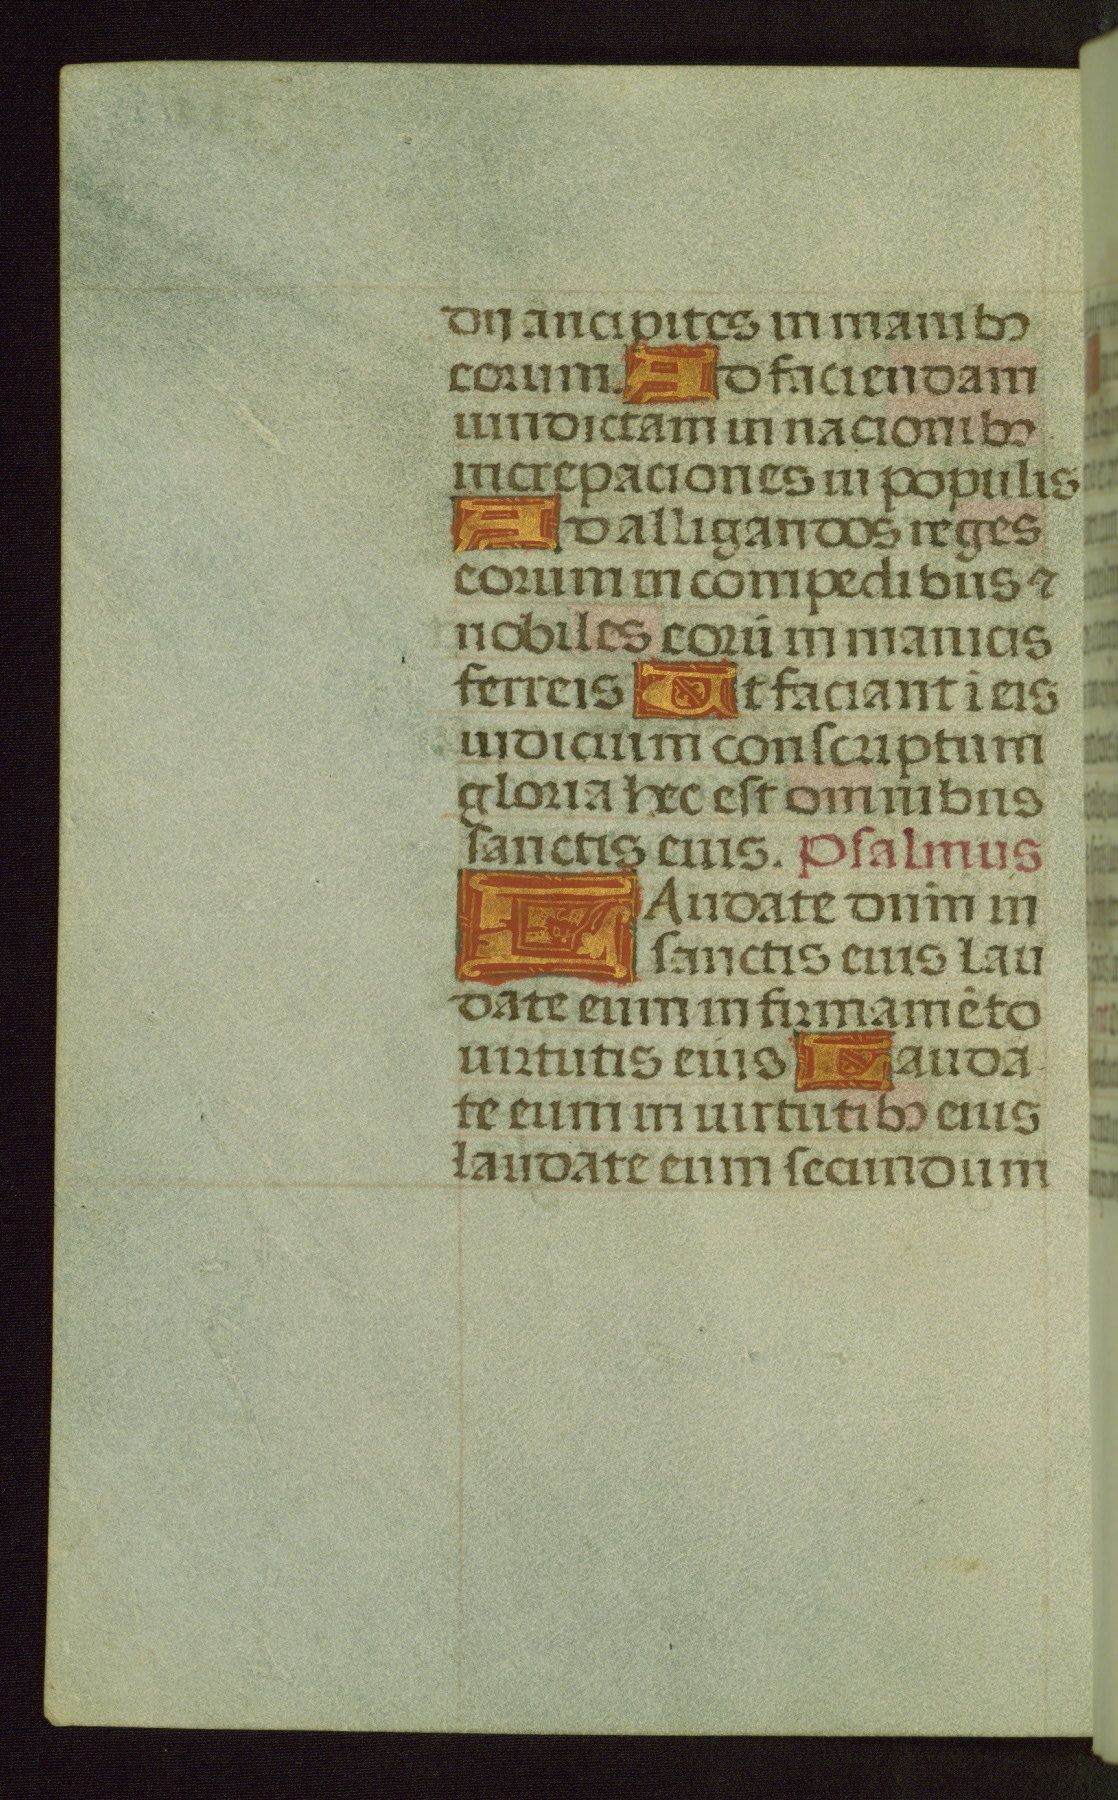 dij ancipites in manib9
eorum. Ad faciendam
uindictam in nacionib9
increpaciones in populis
Ad alligandos reges
eorum in compedibus ⁊
nobiles eorū in manicis
ferreis Ut faciant ī eis
iudicium conscriptum
gloria hec est omnibus
sanctis eius. Psalmus
LAudate dnm̄ in
sanctis eius lau
date eum in firmamēto
uirtutis eius Lauda
te eum in uirtutib9 eius
laudate eum secundum